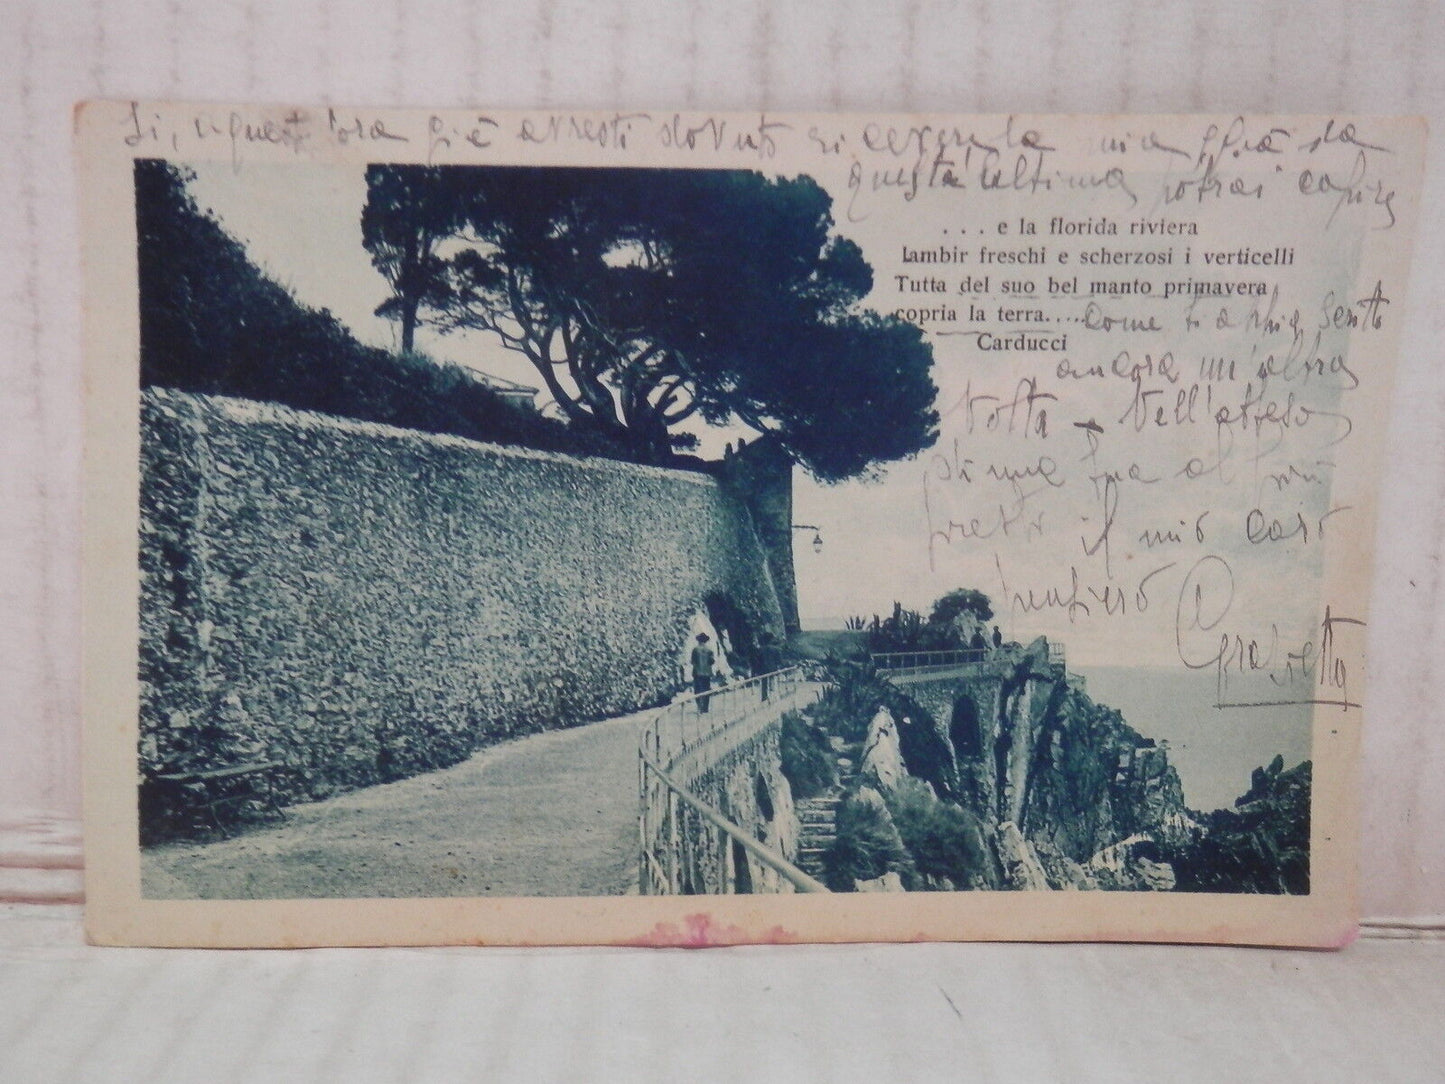 Si, a quest'ora già avresti dovuto ricevere la mia già da
questa ultima potrai capire
. . . e la florida riviera
Lambir freschi e scherzosi i verticelli
Tutta del suo bel manto primavera
copria la terra.....
Carducci
come ti abbia scritto
ancora un'altra
volta - Nell'attesa
di una tua al più
presto il mio caro
pensiero
Graziella